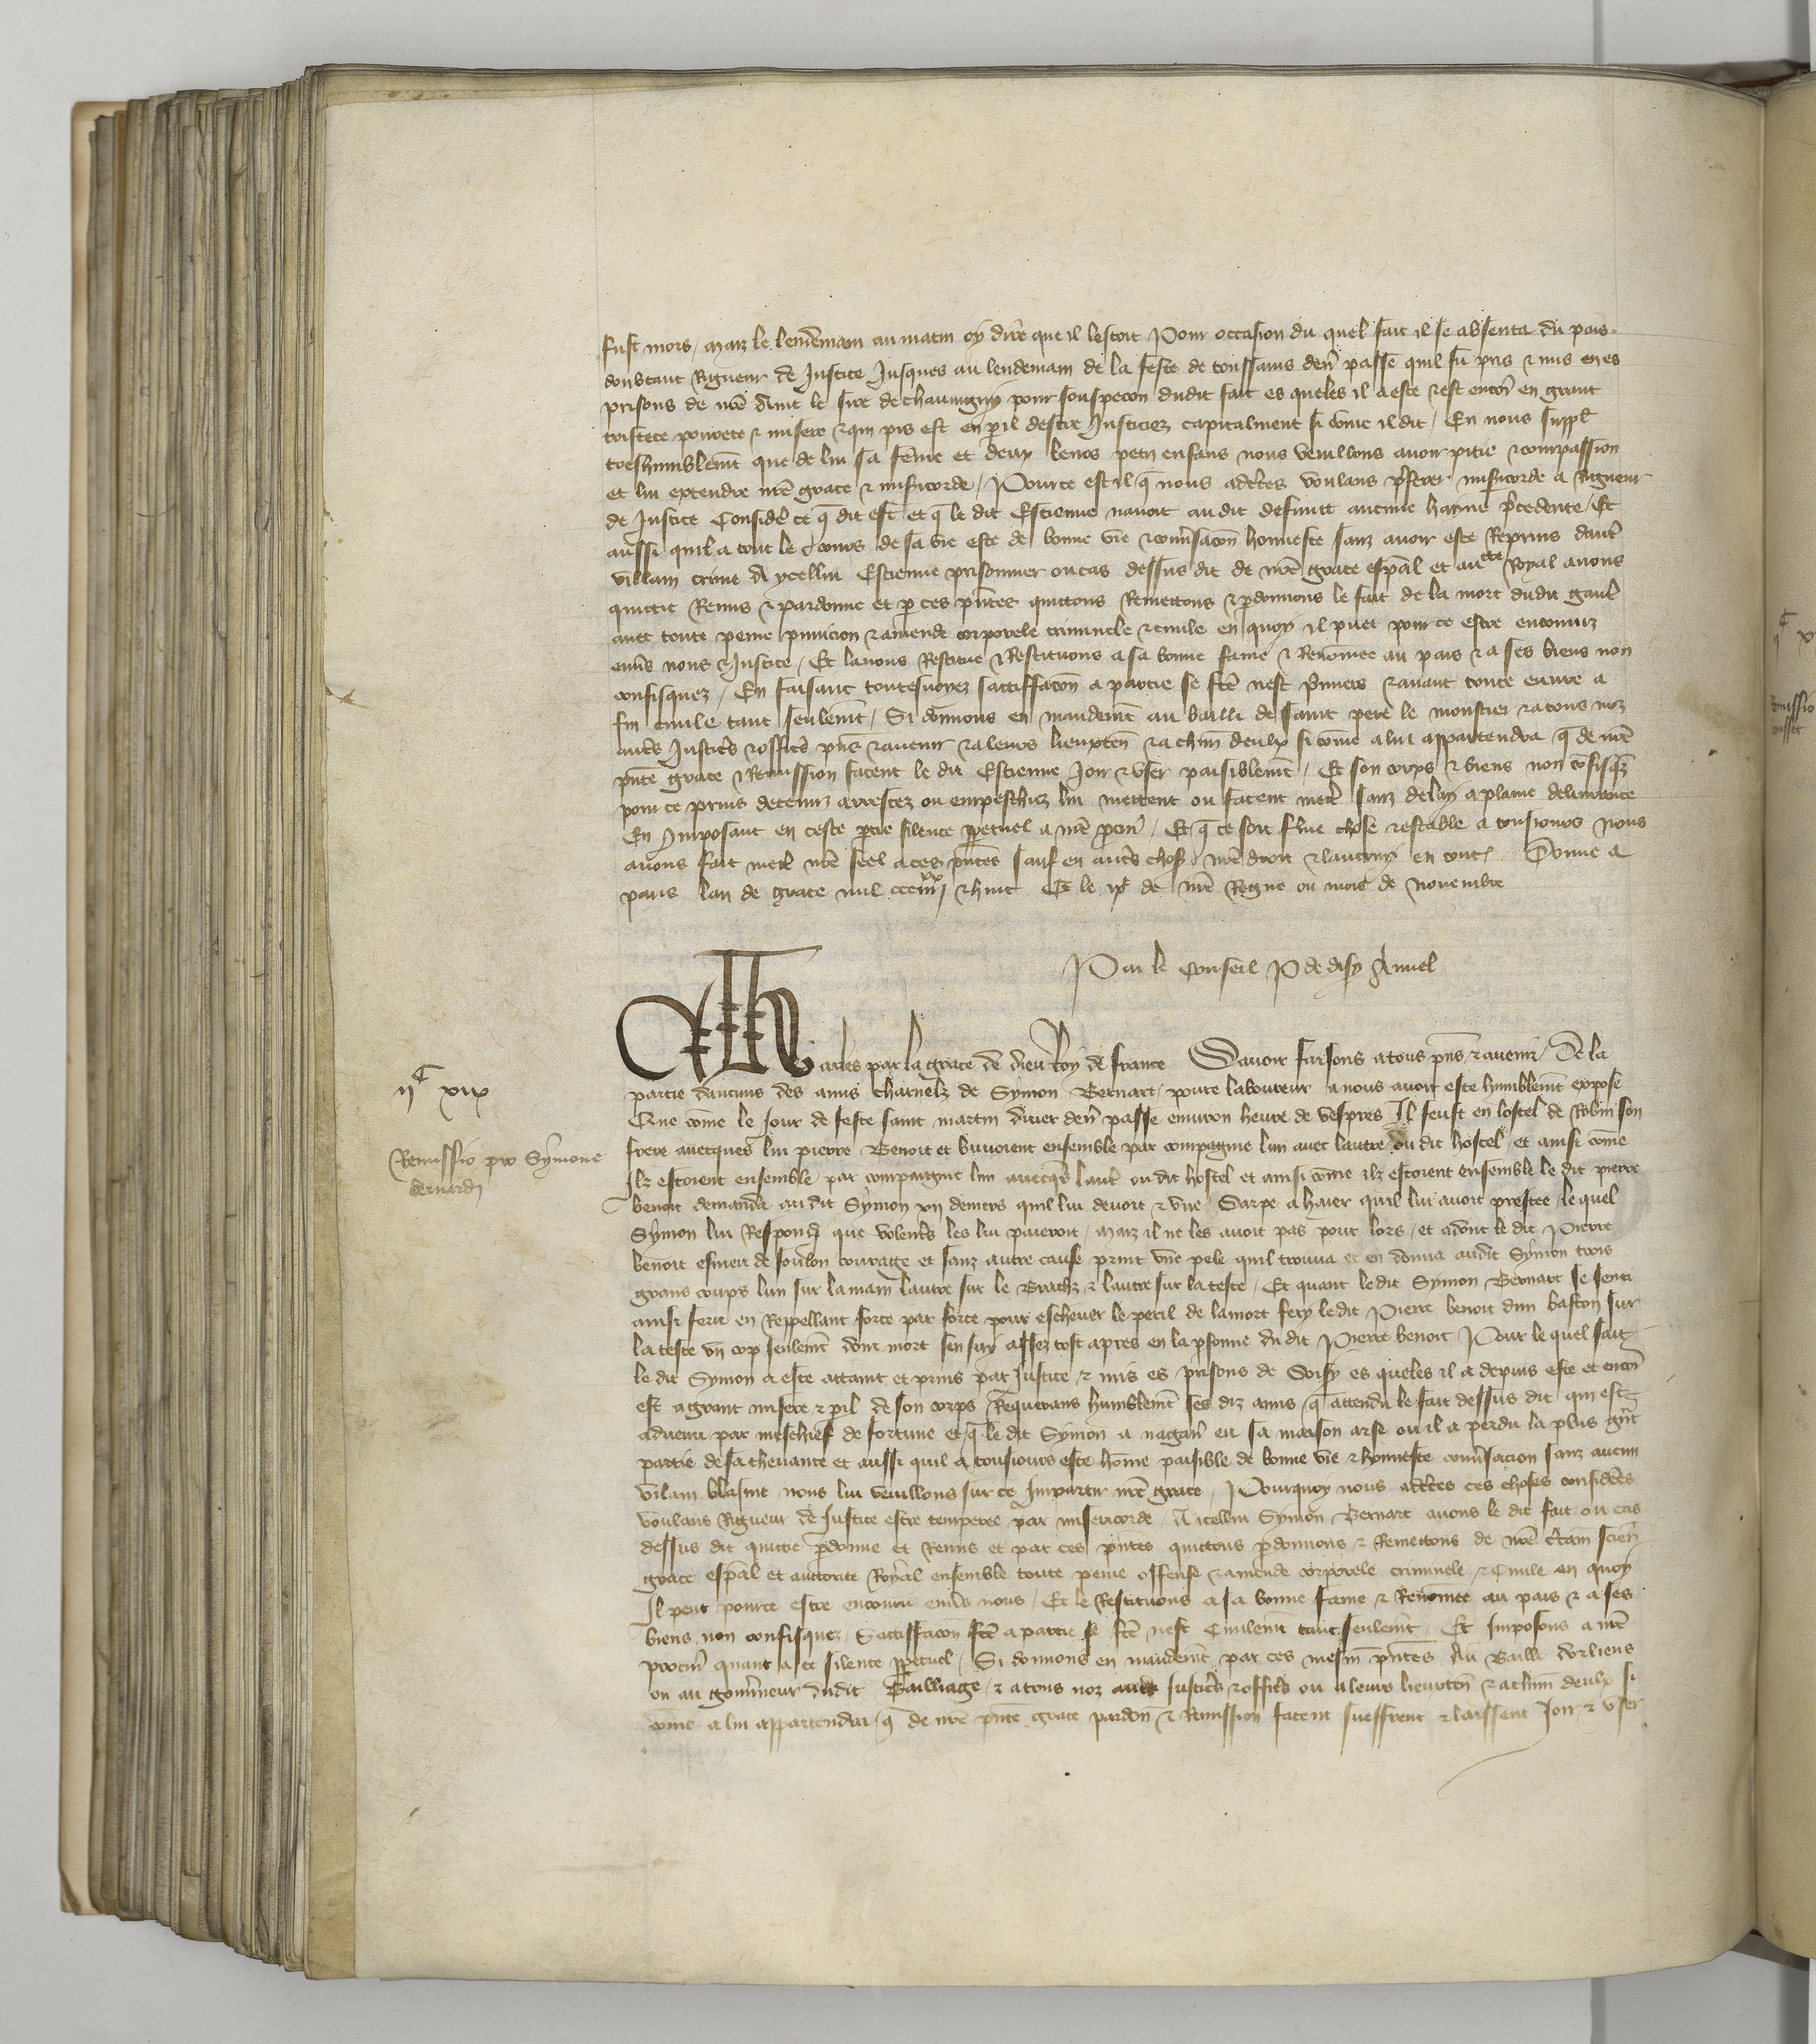 fust mors / maiz le lendemain au matin oy dire que il lestoit Pour occasion du quel fait il se absenta du pais
doubtant Rigueur de Justice Jusques au lendemain de la feste de toussains den̄r passe quil fu pris & mis en es
prisons de nr̄e Ame le sire de chauuigny pour souspecon dudit fait es queles il a este & est encor̄ en grant
tristece pourete & misere & qui pis est en peril destre Justiciez capitalment si cōme il dit / En nous suppl̄
treshumblemt̄ que de lui sa fēme et deux leurs petiz enfans nous veuillons auoir pitie & compassion
et lui extendre nr̄e grace & mis̄icorde / Pource est il q̄ nous adc̄tes voulans p̄ferer mis̄icorde a Rigueur
de Justice Consider̄ ce q̄ dit est et q̄ le dit Estienne nauoit au dit defunct aucune hayne p̄cedente / Et
aussi quil a tout le cours de sa vie este de bonne vie & conuersac̄on honneste sanz auoir este Reprins dautr̄
villain crime A ycellui Estienne prisonnier ou cas dessus dit de nr̄e grace esp̄al et aucte Royal auons
quittie Remis & pardonne et p ces pn̄tes quittons Remettons & pdonnons le fait de la mort dudit gautr̄
auec toute peine punicion & amende corporele criminele & ciuile en quoy il puet pour ce estre encouruz
enuers nous & Justice / Et lauons Restitue & Restituons a sa bonne fame & Renōmee au pais & a ses biens non
confisquez / En faisant toutesuoyez sattiffac̄on a partie se fcē nest p̄miers & auant toute euure a
fin ciuile tant seulemt̄ / Si donnons en mandemt̄ au bailli de saint pere le monstier & a touz noz
autr̄s Justic̄s & offic̄s pn̄s & auenir & a leurs lieuxten̄ & a chūn deulx si cōme a lui appartendra q̄ de nr̄e
pn̄te grace & Remission facent le dit Estienne Joir & vser paisiblemt̄ / Et son corps & biens non cōfisq̄z
pour ce prins detenuz arrestez ou empeschiez lui mettent ou facent mettr̄ sanz delay a plaine deliurance
En Imposant en ceste partie silence ppetuel a nr̄e procur̄ / Et q̄ ce soit ferme chose & estable a tousiours Nous
auons fait mettr̄ nr̄e seel a ces pn̄tes sauf en autr̄s chos̄ nr̄e droit & lautruy en toutes Donne a
paris lan de grace mil ccc iiiixx & huit Et le ixe de nr̄e Regne ou mois de Nouembre
Par le Conseil P de disy Anuel
Charles par la grace de dieu Roy de france Sauoir faisons a tous pn̄s & auenir De la
partie daucuns des amis charnelz de Symon Bernart poure laboureur a nous auoir este humblemt̄ expose
Que cōme le Jour de feste saint martin diuer den̄r passe enuiron heure de vespres Il feust en lostel de Robin son
frere auecques lui pierre Benoit et buuoient ensemble par compagnie lun auec lautre ou dit hostel / et ainsi cōme
Ilz estoient ensemble par compaignie lun auecq̄s lautr̄ ou dit hostel et ainsi cōme ilz estoient ensemble le dit pierre
benoit demanda au dit Symon xii deniers quil lui deuoit & vne Sarpe a haier quil lui auoit prestee / le quel
Symon lui Respondi que volentr̄s les lui paieroit / maiz il ne les auoit pas pour lors / et adont le dit Pierre
benoit esmeu de son courage et sanz autre cause print vne pele quil trouua et en donna audit Symon trois
grans coups lun sur la main lautre sur le Brachz & lautre sur la teste / Et quant le dit Symon Bernart se senti
ainsi feru en Reppellant force par force pour escheuer le peril de la mort fery le dit Pierre benoit dun baston sur
la teste vn cop seulemt̄ dont mort sen suy assez tost apres en la psonne du dit Pierre benoit / Pour le quel fait
le dit Symon a este attaint et prins par Justice & mis es prisons de Soisy es queles il a depuis este et encor̄
est a grant misere & pil de son corps / Requerans humblemt̄ ses diz amis / q̄ attendu le fait dessus dit qui est
aduenu par meschief de fortune et q̄ le dit Symon a nagair̄ eu sa maison arse ou il a perdu la plus gr̄nt
partie de sa cheuance et aussi quil a tousiours este hōme paisible de bonne vie & honneste conuersacion sanz aucun
vilain blasme nous lui veuillons sur ce Impartir nr̄e grace / Pourquoy nous adc̄tes ces choses consideres
voulans Rigueur de Justice estre temperee par misericorde / A icellui Symon Bernart auons le dit fait ou cas
dessus dit quitte pdonne et Remis et par ces pn̄tes quittons pdonnons & Remettons de nr̄e c̄taīn scien̄
grace esp̄al et auctorite Royal ensemble toute peine offense & amende corporele criminele & Ciuile en quoy
Il peut pource estre encouru enuers nous / Et le Restituons a sa bonne fame & Renōmee au pais & a ses
biens non confisquez / Sattiffac̄on fcē a partie se fcē nest Ciuilemt̄ tant seulemt̄ / Et Imposons a nr̄e
procur̄ quant a ce silence ppetuel / Si donnons en mandemt̄ par ces mesm̄ pn̄tes / Au Bailli dorliens
ou au gouu̅neur dudit Bailliage / & a tous noz autr̄s Justic̄s & offic̄s ou a leurs lieuxten̄ & a chūn deulx si
cōme a lui appartendra / q̄ de nr̄e pn̄te grace pardon & Remission facent sueffrent & laissent Joir & vser
iic xix
Remissio pro Symone
bernardi